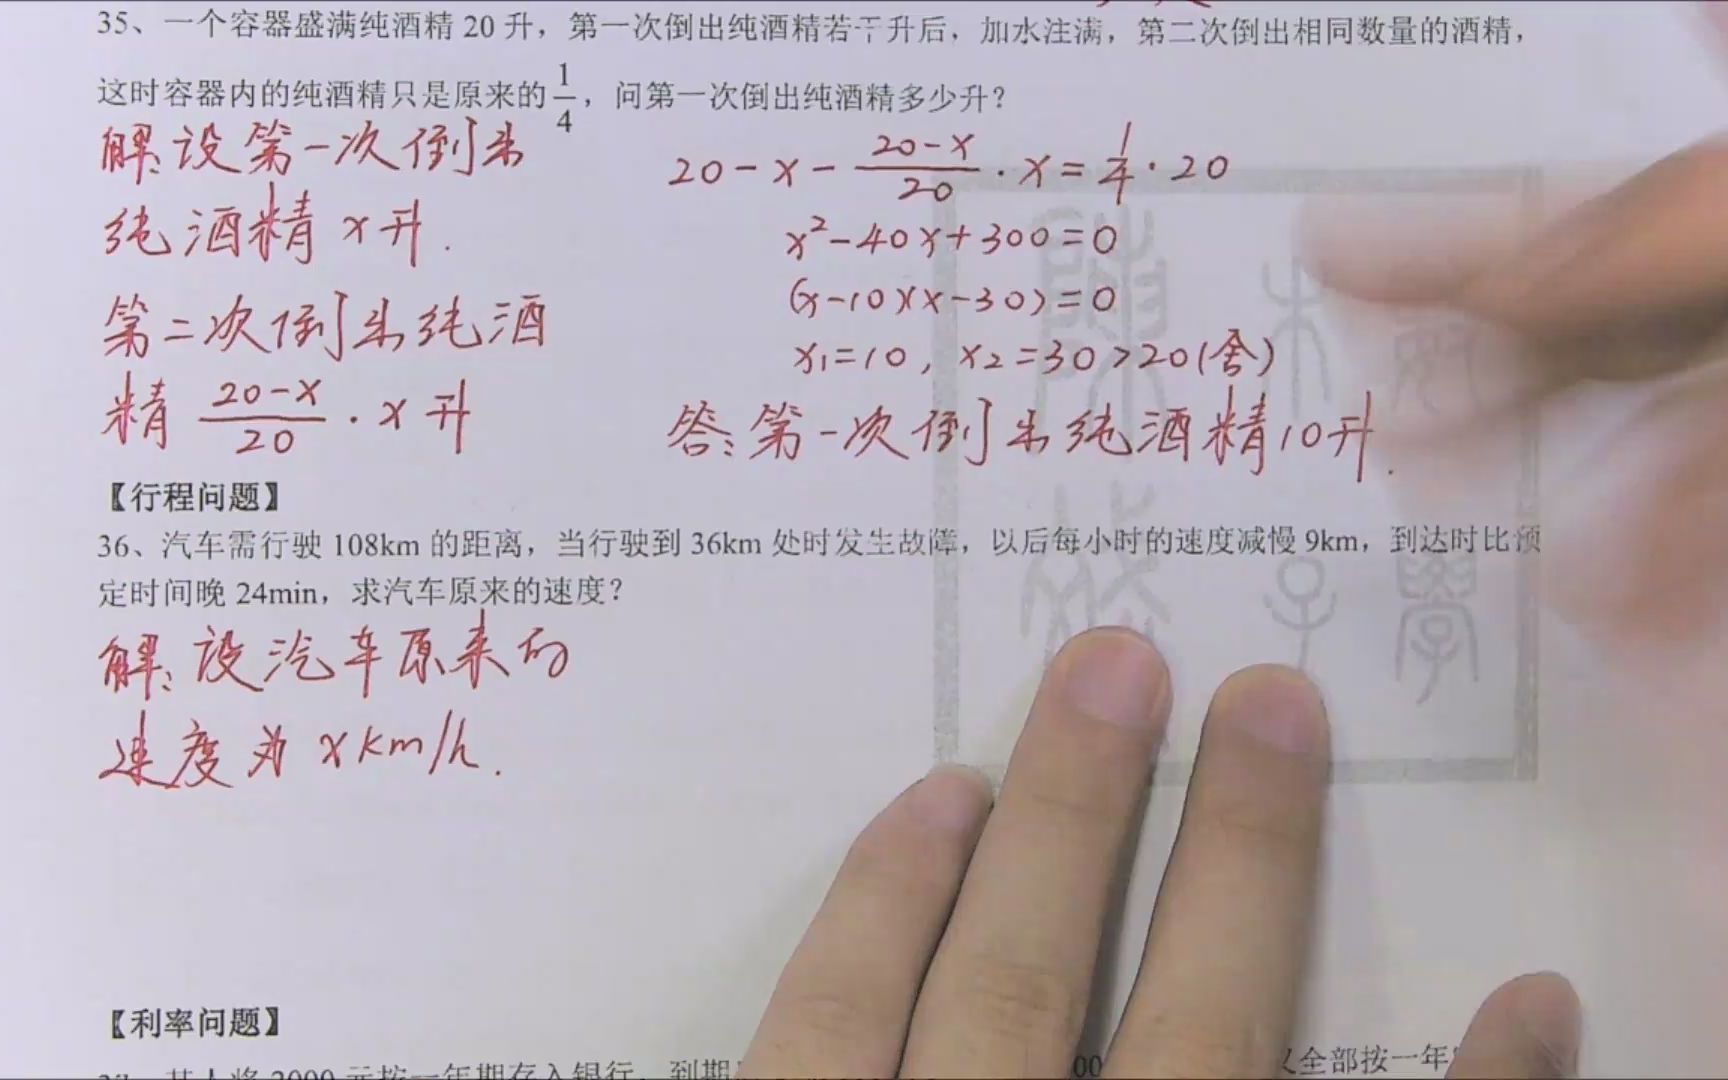 35、一个容器盛满纯酒精 20 升，第一次倒出纯酒精若干升后，加水注满，第二次倒出相同数量的酒精，
这时容器内的纯酒精只是原来的 1/4，问第一次倒出纯酒精多少升？
解:设第一次倒出
纯酒精 x升.
第二次倒出纯酒
精 (20-x)/20 · x 升
20-x-(20-x)/20 · x = 1/4 · 20
x²-40x+300=0
(x-10)(x-30)=0
x₁=10, x₂=30>20(舍)
答:第一次倒出纯酒精10升.
【行程问题】
36、汽车需行驶 108km 的距离，当行驶到 36km 处时发生故障，以后每小时的速度减慢 9km，到达时比预
定时间晚 24min，求汽车原来的速度？
解:设汽车原来的
速度为 xkm/h.
【利率问题】
某人将 2000 元按一年期存入银行，到期
又全部按一年